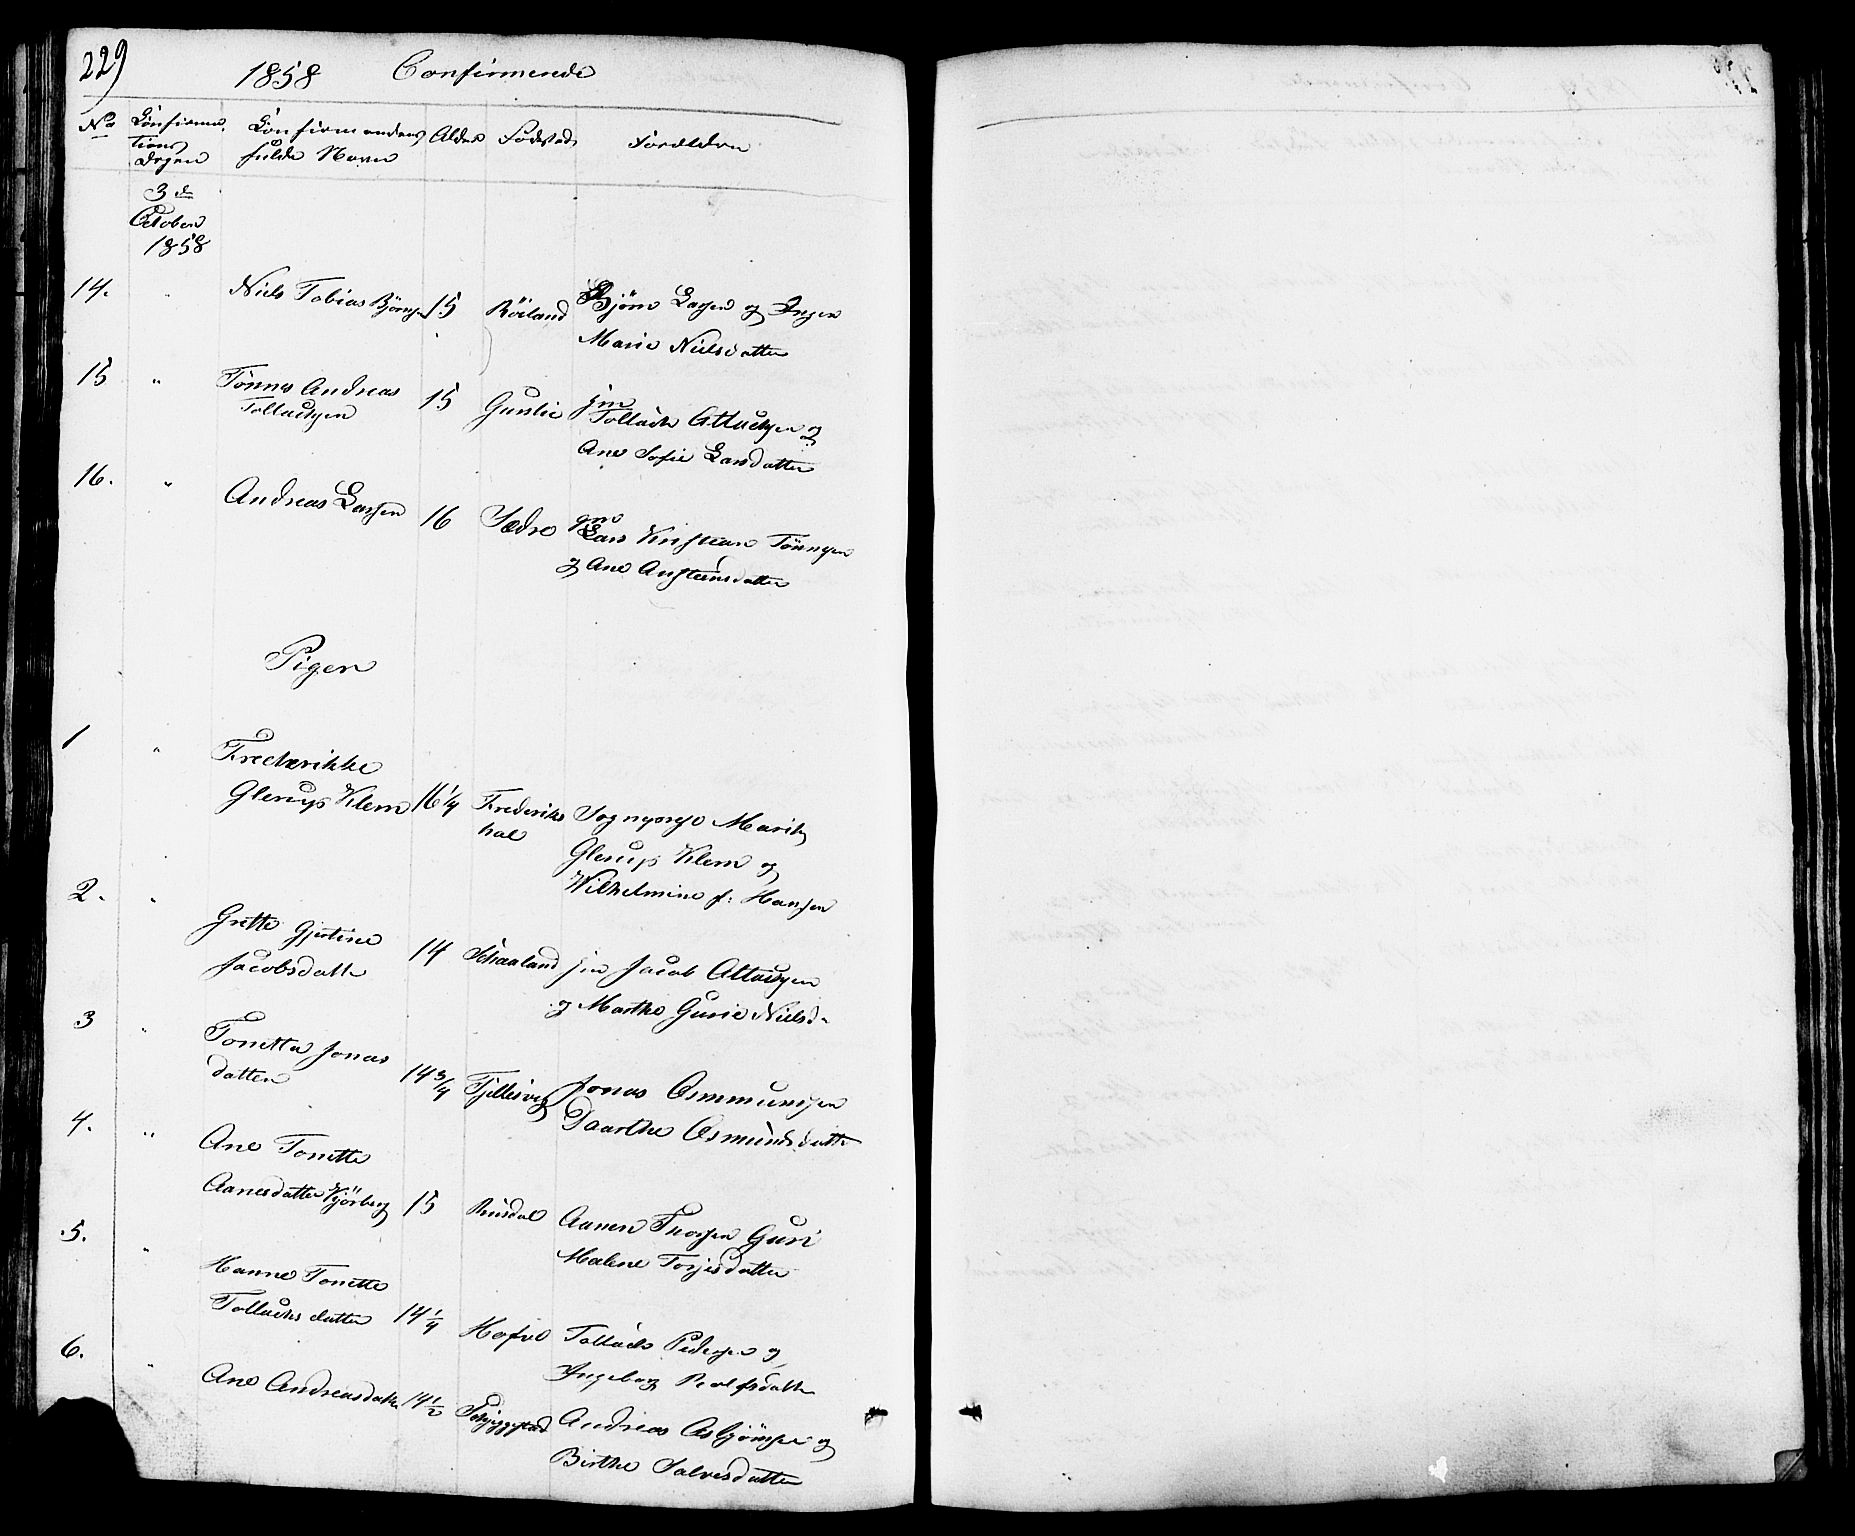 229
1858 Confirmerede
No Confirma- Confirmandens Alder Födsted Forældre
tions fulde Navn
Dagen
3die
October
1858
14. " Niels Tobias Björnsen 15 Röiland Björn Larsen og Inger
Marie Nielsdatter
15 " Tönnes Andreas 15 Gunlie
Tollachsen Tollach Attachsen og
Ane Sofie Larsdatter
16. " Andreas Larsen 16 Lars Kristian Tönnesen
og Ane Ansteensdatter
Piger
1 " Frederikke
Glerup Klem 16 1/4 Frederiks Sogneprest
hal Glerup Klem og
Wilhelmine f: Hansen
2. " Grette Gjertine
Jacobsdatter 14 Schaaland Jacob Attachsen
og Marthe Gurie Nielsd-
3 " Tonette Jonas
datter 14 3/4 Tjellesvig Jonas Osmunsen
Daarthe Osmundsdatter
4. " Ane Tonette
Aanesdatter Kjörberg 15 Aanen Thorsen Guri
Malene Torjesdatter
5. " Hanne Tonette
Tollachsdatter 14 1/4 Tollach Pedersen og
Ingeborg Rolfsdatter
6. " Ane Andreasdatter 14 1/2 Andreas Asbjörnsen og
Birthe Salvesdatter